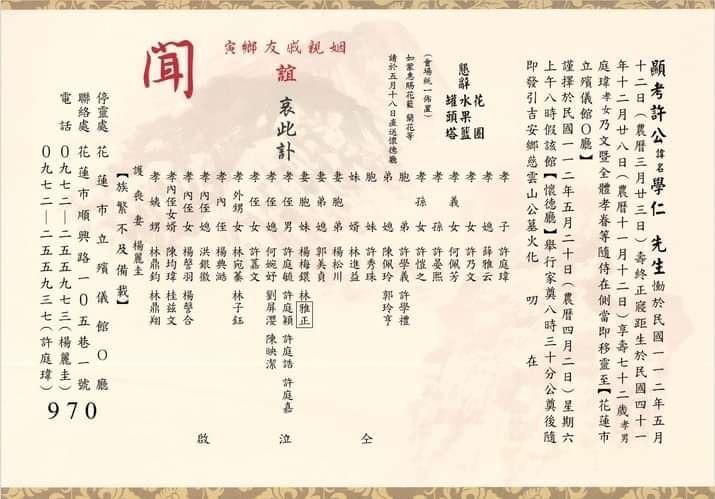 顯考許公諱名學仁 先生慟於民國一一二年五月
十二日（農曆三月廿三日）壽終正寢距生於民國四十一
年十二月廿八日（農曆十一月十二日）享壽七十二歲孝男
庭瑋孝女乃文暨全體孝眷等隨侍在側當即移靈至【花蓮市
立殯儀館O廳】
謹擇於民國一一二年五月二十日（農曆四月二日）星期六
上午八時假該館【懷德廳】舉行家奠八時三十分公奠後隨
即發引吉安鄉慈雲山公墓火化 叨 在
懇辭
花圈
水果籃
罐頭塔
（會場統一佈置）
如蒙惠賜花籃 蘭花等
請於五月十八日直送懷德廳
姻親戚友鄉寅
誼
哀此訃
聞
孝子 許庭瑋
孝媳 薛雅云
孝女 許乃文
孝義女 何佩芳
孝孫 許晏熙
孝孫女 許愷之
胞弟 許學義 許學禮
弟媳 陳佩玲 郭玲亨
胞妹 許秀珠
妹婿 林進益
妻胞弟 楊松川
妻弟媳 郭美貞
妻胞妹 楊梅鐶 林雅正
孝侄男 許庭毓 許庭穎 許庭誥 許庭嘉
孝侄媳 何婉妤 劉屏瀴 陳映潔
孝侄女 許嘉文
孝外甥女 林宛蓁 林子鈺
孝內侄 楊典澔
孝內侄媳 洪銀徽
孝內侄女 楊謦羽 楊謦合
孝內侄女婿 陳均瑋 桂茲文
孝姨甥 林鼎鈞 林鼎翔
護喪妻 楊麗圭
【族繁不及備載】
仝 泣 啟
停靈處 花蓮市立殯儀館O廳
聯絡處 花蓮市順興路一０五巷一號
電話 ０九七二—二五五九七三（楊麗圭）
０九七二—二五五九三七（許庭瑋）
970